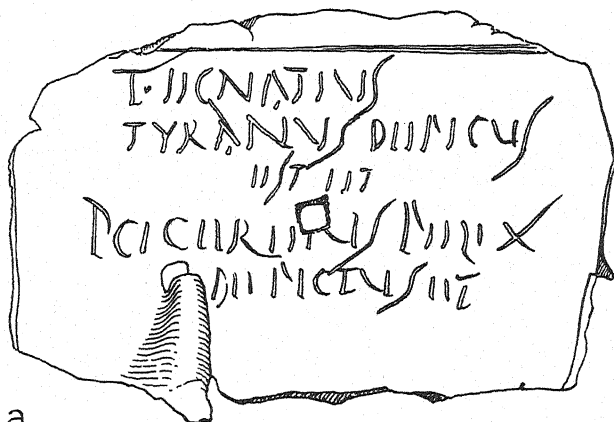 L·IIGNATIUS
TYRANUS DIIFICUS
IIST IIT
P CICIIRIIIUS FIILIX
DIIFICTUS IIT
a